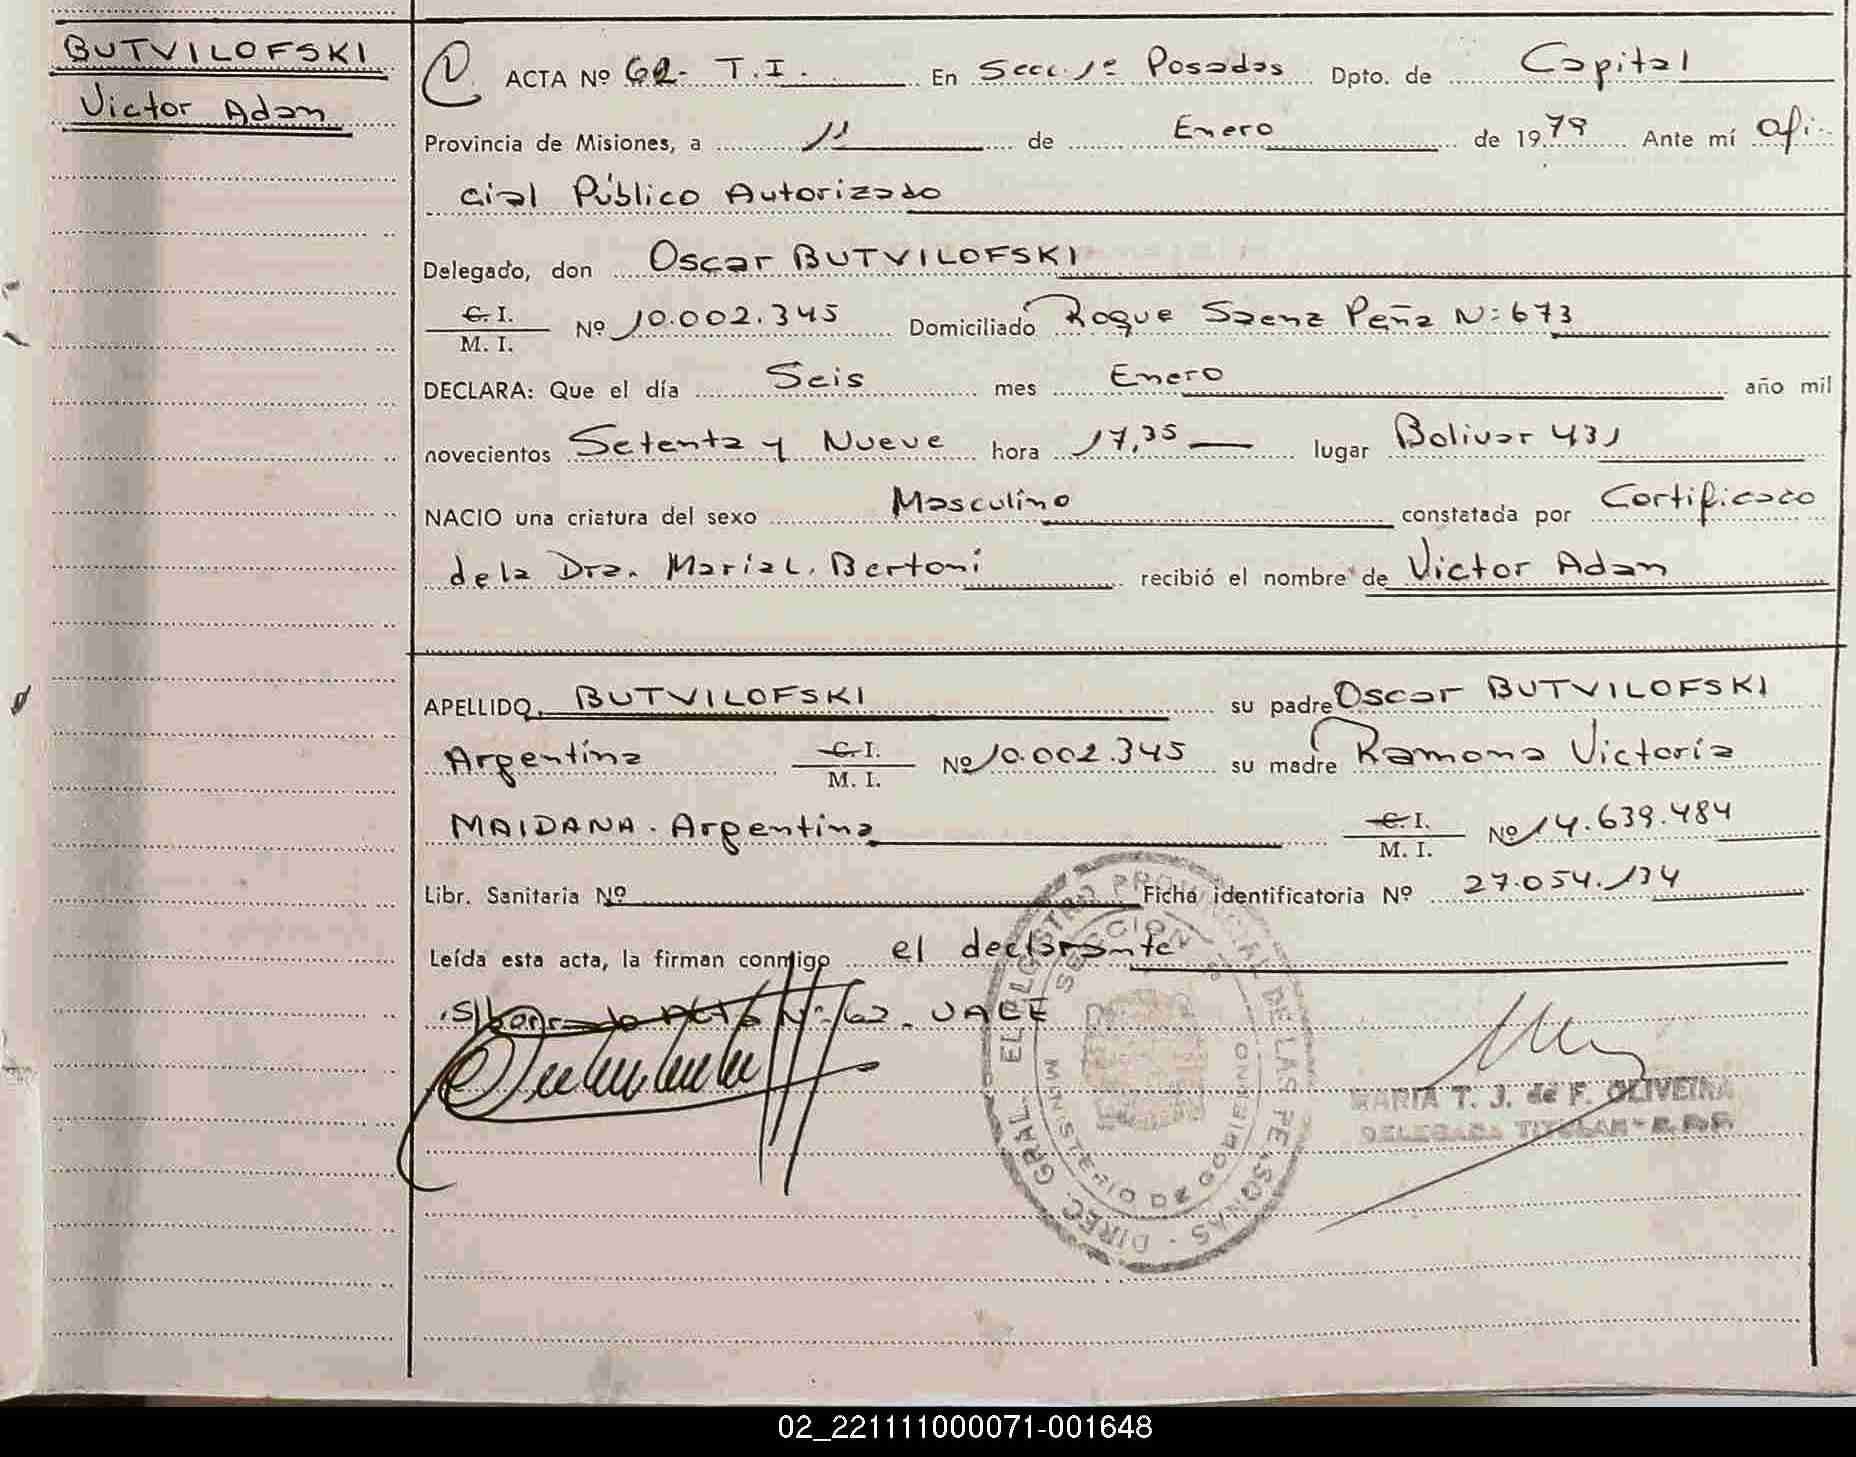 BUTVILOFSKI
Victor Adan
ACTA Nº 62- T.I. En Secc. 1ª Posadas Dpto. de Capital
Provincia de Misiones, a 11 de Enero de 1979 Ante mí Ofi-
cial Público Autorizado
Delegado, don Oscar BUTVILOFSKI
C. I. / M. I. Nº 10.002.345 Domiciliado Roque Saenz Peña Nº 673
DECLARA: Que el día Seis mes Enero año mil
novecientos Setenta y Nueve hora 17,35 lugar Bolivar 431
NACIO una criatura del sexo Masculino constatada por Certificado
de la Dra. Maria L. Bertoni recibió el nombre de Victor Adan
APELLIDO BUTVILOFSKI su padre Oscar BUTVILOFSKI
Argentina C. I. / M. I. Nº 10.002.345 su madre Ramona Victoria
MAIDANA. Argentina C. I. / M. I. Nº 14.639.484
Libr. Sanitaria Nº Ficha identificatoria Nº 27.054.134
Leída esta acta, la firman conmigo el declarante
S/borrado Acta Nº 62. VALE
DIREC. GRAL. EL REGISTRO PROVINCIAL DE LAS PERSONAS
SECCION 1ª
MINISTERIO DE GOBIERNO
MARIA T. J. de F. OLIVEIRA
DELEGADA TITULAR - R. P. P.
02_221111000071-001648